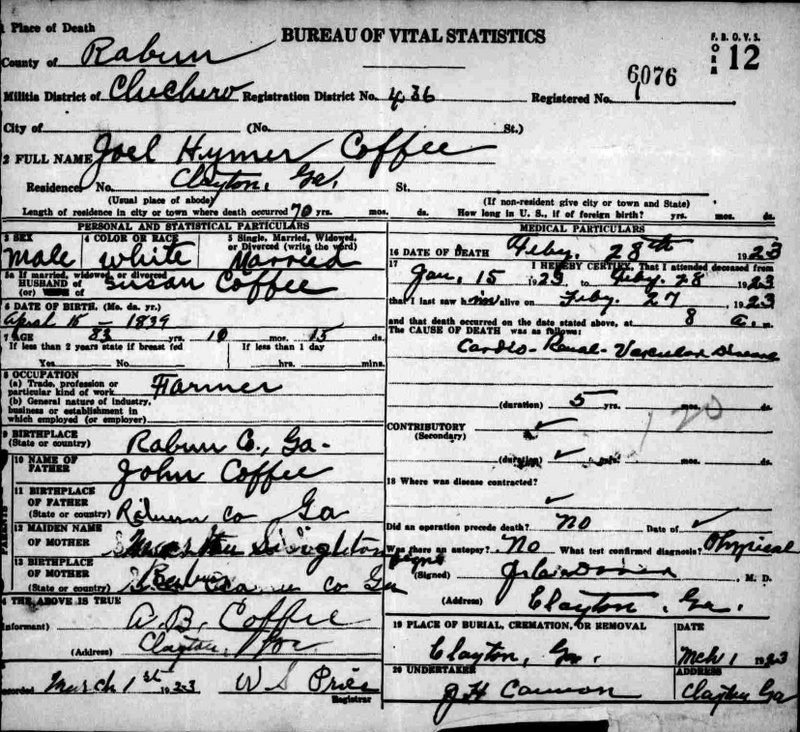 1 Place of Death
BUREAU OF VITAL STATISTICS
F. B. O. V. S.
FORM 12
County of Rabun
6076
Militia District of Chechero Registration District No. 436 Registered No.
City of (No. St.)
2 FULL NAME Joel Hymer Coffee
Residence No. Clayton, Ga. St.
(Usual place of abode) (If non-resident give city or town and State)
Length of residence in city or town where death occurred 70 yrs. mos. ds. How long in U. S., if of foreign birth? yrs. mos. ds.
PERSONAL AND STATISTICAL PARTICULARS
3 SEX
male
4 COLOR OR RACE
white
5 Single, Married, Widowed, or Divorced (write the word)
Married
5a If married, widowed, or divorced
HUSBAND of Susan Coffee
(or)
6 DATE OF BIRTH. (Mo. da. yr.)
April 15 - 1839
7 AGE 83 yrs. 10 mos. 15 ds.
If less than 2 years state if breast fed If less than 1 day
Yes No hrs. mins.
8 OCCUPATION
(a) Trade, profession or particular kind of work Farmer
(b) General nature of industry, business or establishment in which employed (or employer)
9 BIRTHPLACE
(State or country) Rabun Co., Ga.
10 NAME OF FATHER John Coffee
11 BIRTHPLACE OF FATHER
(State or country) Rabun Co Ga
12 MAIDEN NAME OF MOTHER
13 BIRTHPLACE OF MOTHER
(State or country) co Ga
PARENTS
THE ABOVE IS TRUE
Informant) A.B. Coffee
(Address) Clayton, Ga.
March 1st 1923 W S Price
Registrar
MEDICAL PARTICULARS
16 DATE OF DEATH Feby. 28th 1923
17 I HEREBY CERTIFY, That I attended deceased from
Jan, 15 1923 to Feby. 28 1923
that I last saw him alive on Feby. 27 1923
and that death occurred on the date stated above, at 8 a. m
The CAUSE OF DEATH was as follows:
Cardio-Renal-Vascular Disease
(duration) 5 yrs. mos. ds.
CONTRIBUTORY
(Secondary)
(duration) mos. ds.
18 Where was disease contracted?
Did an operation precede death? No Date of
Was there an autopsy? No What test confirmed diagnosis? Physical
(Signed) M. D.
(Address) Clayton, Ga.
19 PLACE OF BURIAL, CREMATION, OR REMOVAL DATE
Clayton, Ga. Mch 1 1923
20 UNDERTAKER ADDRESS
J H Cannon Clayton Ga